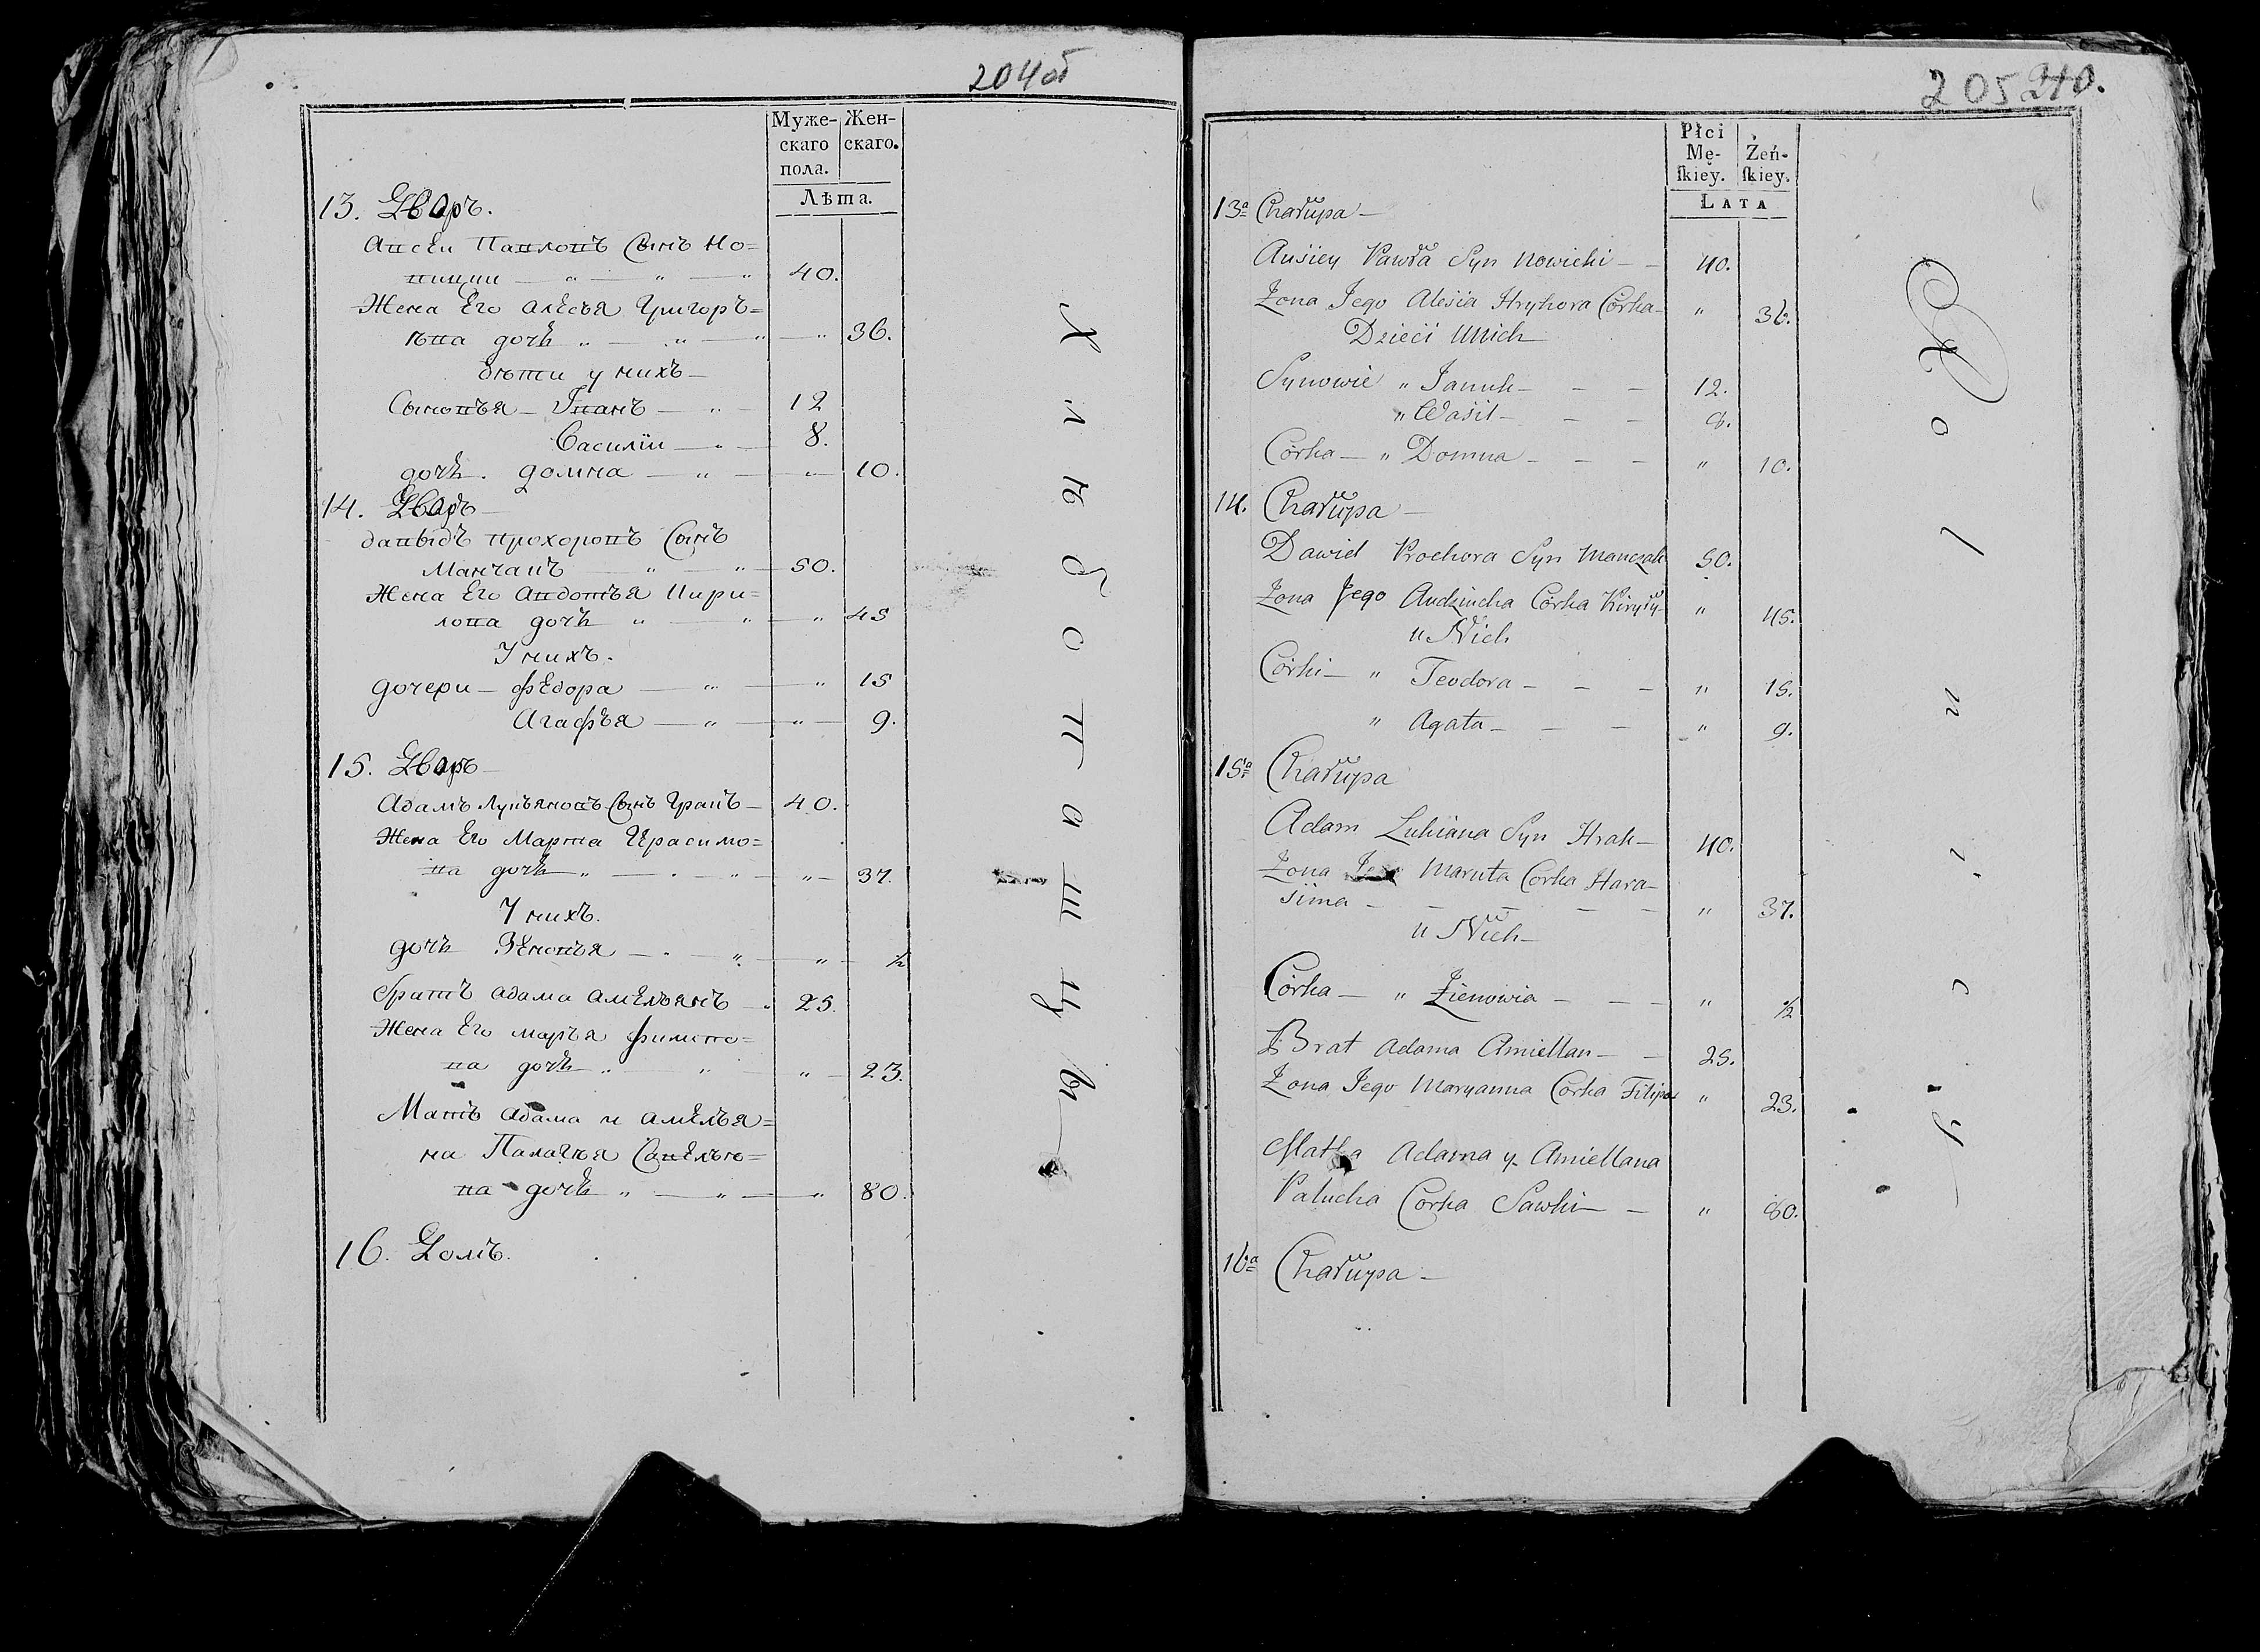 204об
Муже-
скаго
пола.
Жен-
скаго.
Лѣта.
13. Дворъ.
Авсей Павловъ Сынъ Но=
вицки — " — " — " 40.
Жена Его Алесья Григорь=
ева дочь " — " — " — " 36.
дѣти у нихъ —
Сыновья — Иванъ — " — 12
Василій — " — 8.
дочь. Домна — " — " — 10.
14. Дворъ —
Давыдъ Прохоровъ Сынъ
Манчакъ — " — " — 50.
Жена Его Авдотья Кири=
лова дочь " — " — " 45
У нихъ.
дочери — Федора — " — " 15
Агафья — " — " — 9.
15. Дворъ —
Адамъ Лукьяновъ Сынъ Гракъ — 40.
Жена Его Марта Герасимо=
ва дочь " — " — " — " — 37.
У нихъ.
дочь Зеновья — " — " — " — ½
братъ Адама Амельянъ — " 25.
Жена Его Марья Филипо=
ва дочь " — " — " — 23.
Мать Адама и Амелья=
на Палагея Савелье=
ва дочь " — " — " 80.
16. Домъ.
Хлѣбопашцы
205 210.
Płci
Mę-
ſkiey.
Żeń-
ſkiey.
LATA
13ª Chałupa —
Ausiey Pawła Syn Nowicki — — 40.
Żona Jego Alesia Hryhora Córka — " 36.
Dzieci u Nich —
Synowie " Januk — — — 12.
" Wasil — — — 8.
Córka — " Domna — — — " 10.
14. Chałupa —
Dawid Prochora Syn Manczak 50.
Żona Jego Audziucha Córka Kiryły — " 45.
u Nich
Córki — " Teodora — — — " 15.
" Agata — — — " 9.
15ª Chałupa
Adam Lukiana Syn Hrak — 40.
Żona Jego Maruta Córka Hara—
sima — — — — — " 37.
u Nich —
Córka — " Zienowia — — — " ½
Brat Adama Amiellan — — 25.
Żona Jego Maryanna Córka Filipa " 23.
Matka Adama y Amiellana
Palucha Córka Sawki — — " 80.
16ª Chałupa —
Rolnicy